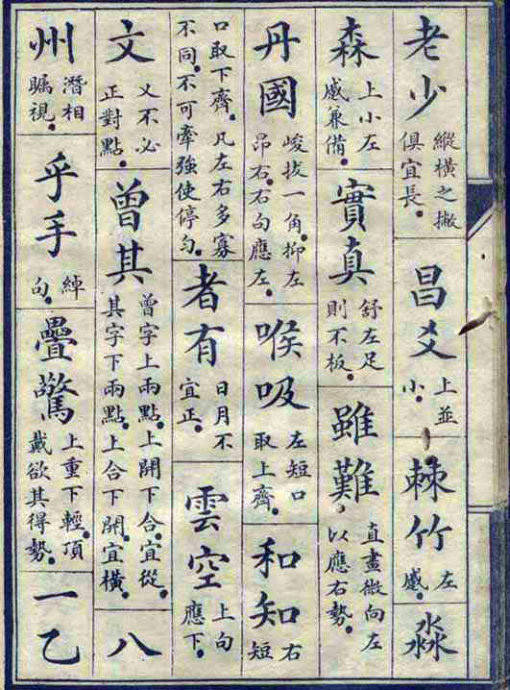 老少
縱橫之撇
俱宜長。
昌爻
上並
小。
棘竹
左
慼。
淼
森
上小左
慼兼備。
實真
舒左足
則不板。
雖難
直畫微向左
以應右勢。
丹國
峻拔一角。抑左
昂右。右句應左。
喉吸
左短口
取上齊。
和知
右
短
口取下齊。凡左右多寡
不同。不可牽強使停勻。
者有
日月不
宜正。
雲空
上句
應下。
文
乂不必
正對點。
曾其
曾字上兩點。上開下合。宜從。
其字下兩點。上合下開。宜橫。
八
州
潛相
矚視。
乎手
綽
句。
疊驚
上重下輕。頂
戴欲其得勢。
一乙